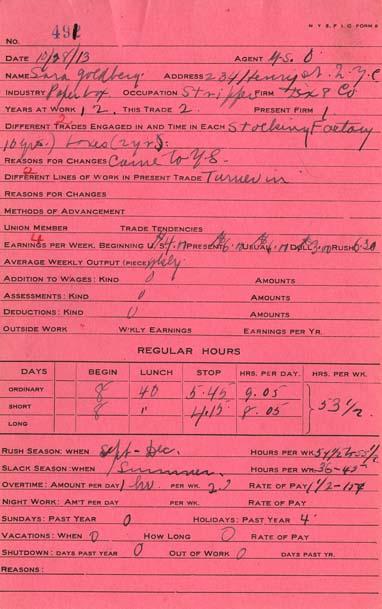 N Y S. F. I. C. FORM 8
No. 491
DATE 10/28/13 AGENT
NAME Sara Goldberg ADDRESS 234 Henry St. N.Y.C
INDUSTRY Paper box OCCUPATION Stripper FIRM B & P Co
YEARS AT WORK 12. THIS TRADE 2 PRESENT FIRM 1
2
DIFFERENT TRADES ENGAGED IN AND TIME IN EACH Stocking Factory
10 yrs.) Boxes (2 yrs):
REASONS FOR CHANGES Came to U.S.
2
DIFFERENT LINES OF WORK IN PRESENT TRADE Turner in
REASONS FOR CHANGES
METHODS OF ADVANCEMENT
UNION MEMBER TRADE TENDENCIES
4
EARNINGS PER WEEK. BEGINNING U/S PRESENT USUAL DULL RUSH 6.50
AVERAGE WEEKLY OUTPUT (PIECE)
ADDITION TO WAGES: KIND 0 AMOUNTS
ASSESSMENTS: KIND 0 AMOUNTS
DEDUCTIONS: KIND 0 AMOUNTS
OUTSIDE WORK W'KLY EARNINGS EARNINGS PER YR.
REGULAR HOURS
DAYS BEGIN LUNCH STOP HRS. PER DAY. HRS. PER WK.
ORDINARY 8 40 5.45 9.05
SHORT 8 " 4.15 8.05 } 53 1/2
LONG
RUSH SEASON: WHEN Sept - Dec. HOURS PER WK
SLACK SEASON: WHEN Summer. HOURS PER WK. 36-45
OVERTIME: AMOUNT PER DAY 1 hr PER WK. RATE OF PAY
NIGHT WORK: AM'T PER DAY PER WK. RATE OF PAY
SUNDAYS: PAST YEAR 0 HOLIDAYS: PAST YEAR 4
VACATIONS: WHEN 0 HOW LONG 0 RATE OF PAY
SHUTDOWN: DAYS PAST YEAR OUT OF WORK 0 DAYS PAST YR.
REASONS: